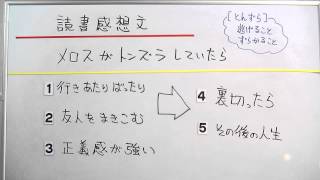 読書感想文
メロスがトンズラしていたら
[とんずら]
逃げること
ずらかること
1 行きあたりばったり
2 友人をまきこむ
3 正義感が強い
4 裏切ったら
5 その後の人生